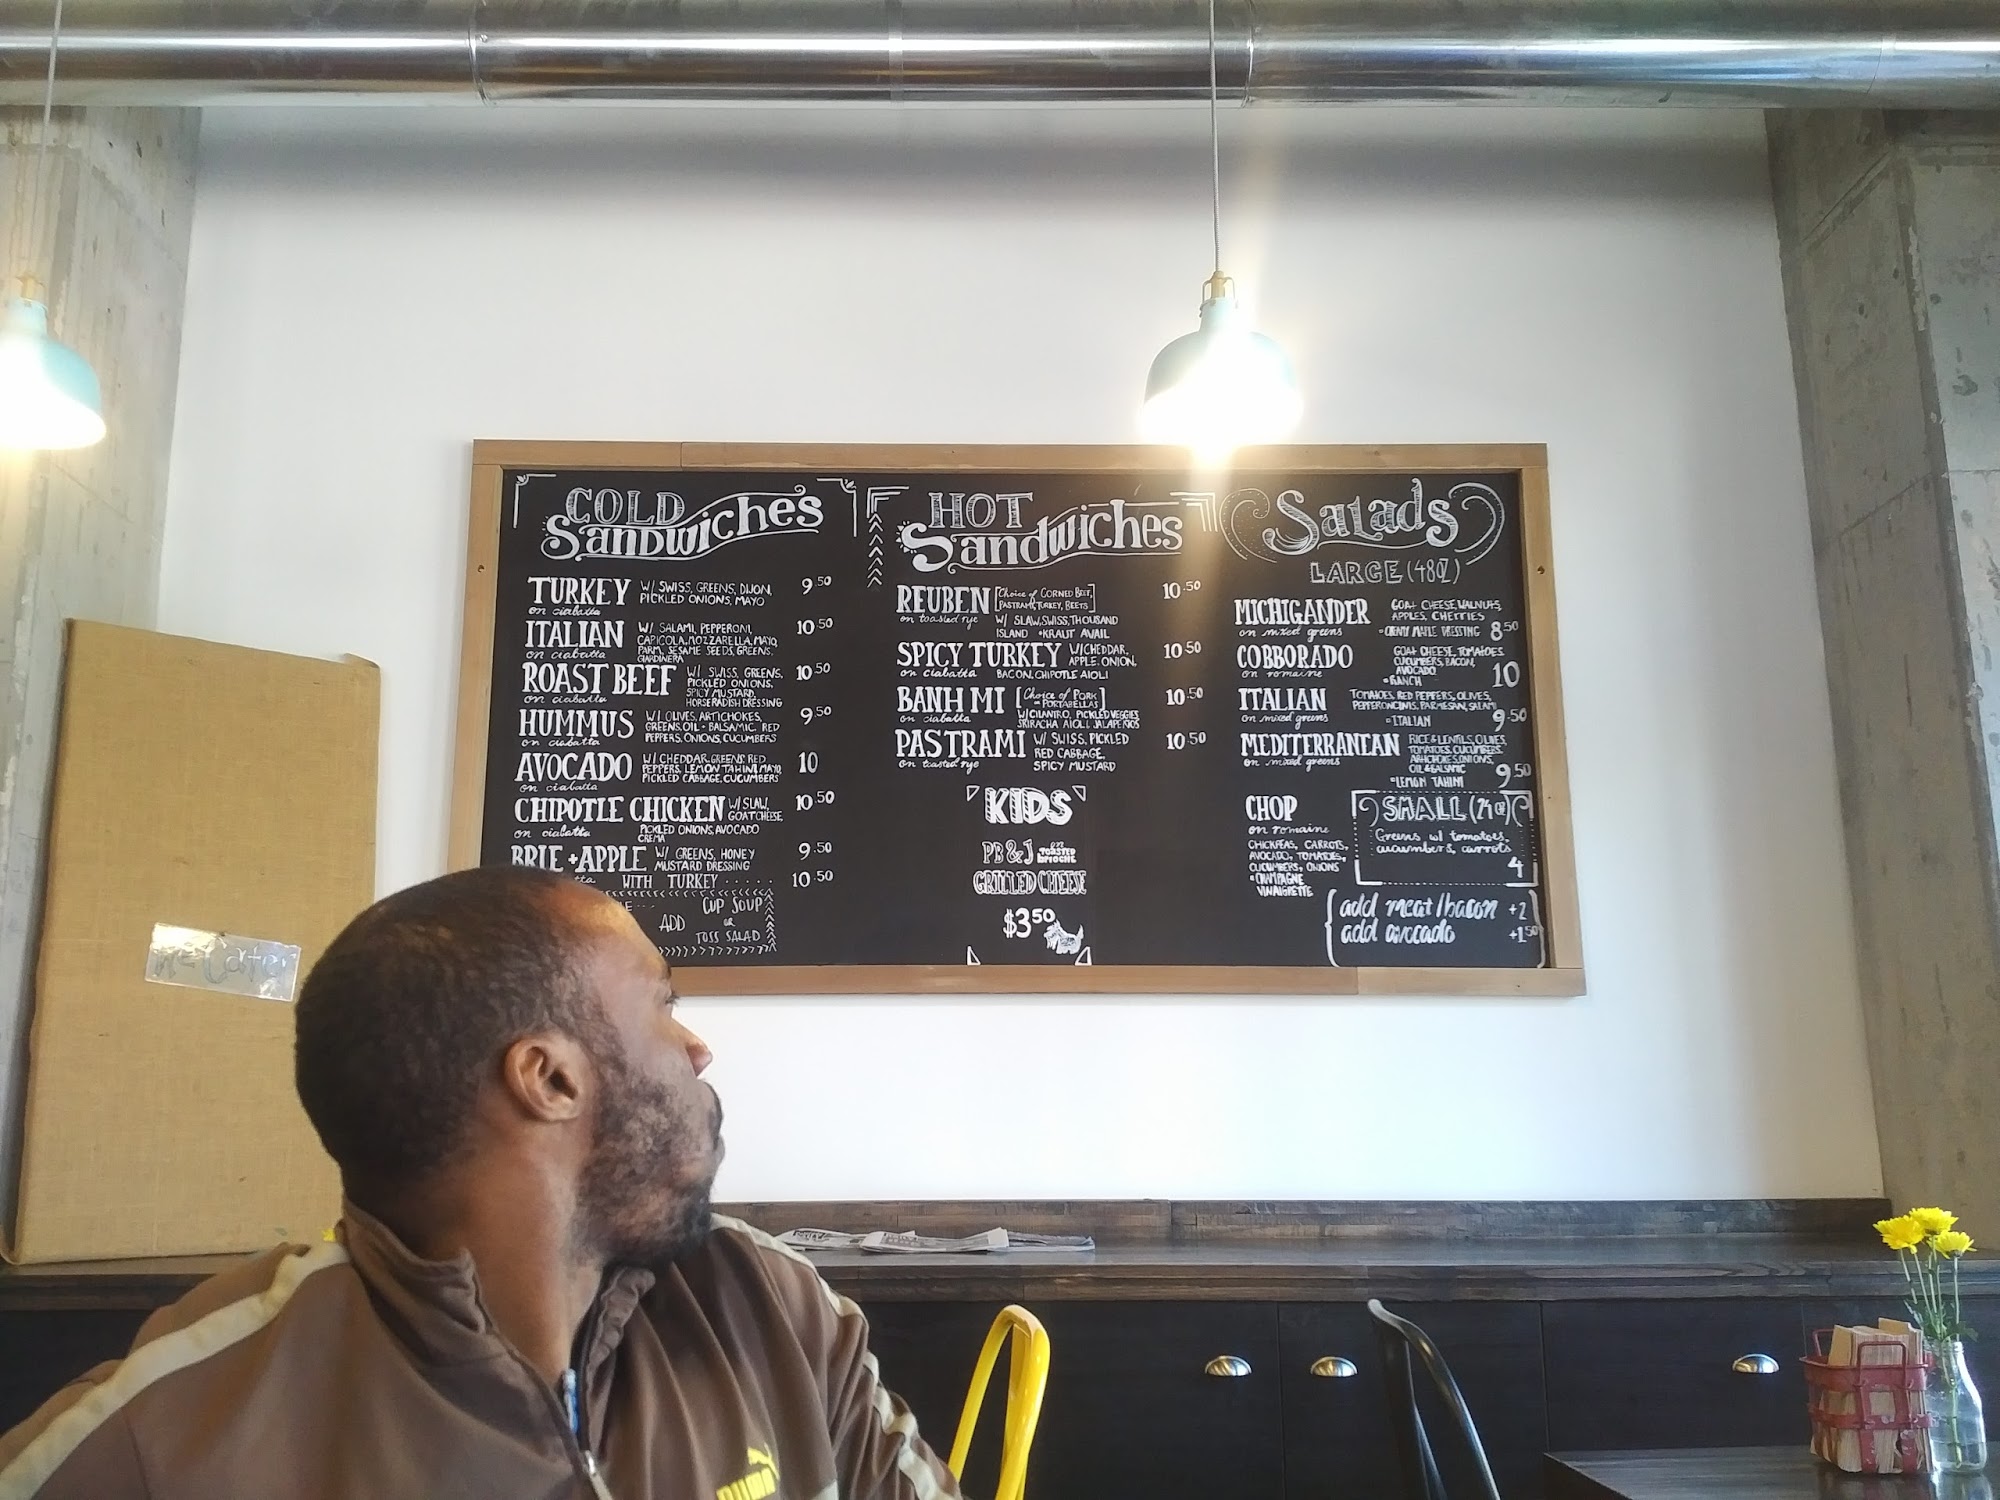 COLD
Sandwiches
TURKEY W/ SWISS, GREENS, DIJON, 9.50
on ciabatta PICKLED ONIONS, MAYO
ITALIAN W/ SALAMI, PEPPERONI, 10.50
CAPICOLA, MOZZARELLA, MAYO,
on ciabatta PARM, SESAME SEEDS, GREENS,
GIARDINERA
ROAST BEEF W/ SWISS, GREENS, 10.50
PICKLED ONIONS,
on ciabatta SPICY MUSTARD,
HORSERADISH DRESSING
HUMMUS W/ OLIVES, ARTICHOKES, 9.50
GREENS, OIL + BALSAMIC, RED
on ciabatta PEPPERS, ONIONS, CUCUMBERS
AVOCADO W/ CHEDDAR, GREENS, RED 10
PEPPERS, LEMON TAHINI MAYO
on ciabatta PICKLED CABBAGE, CUCUMBERS
CHIPOTLE CHICKEN W/ SLAW, 10.50
GOAT CHEESE,
on ciabatta PICKLED ONIONS, AVOCADO
CREMA
BRIE + APPLE W/ GREENS, HONEY 9.50
MUSTARD DRESSING
WITH TURKEY ..... 10.50
ADD CUP SOUP
or
TOSS SALAD
HOT
Sandwiches
REUBEN [Choice of CORNED BEEF, 10.50
PASTRAMI, TURKEY, BEETS]
on toasted rye W/ SLAW, SWISS, THOUSAND
ISLAND *KRAUT AVAIL
SPICY TURKEY W/ CHEDDAR, 10.50
APPLE, ONION,
on ciabatta BACON, CHIPOTLE AIOLI
BANH MI [Choice of PORK 10.50
or PORTABELLAS]
on ciabatta W/ CILANTRO, PICKLED VEGGIES
SRIRACHA AIOLI, JALAPEÑOS
PASTRAMI W/ SWISS, PICKLED 10.50
on toasted rye RED CABBAGE,
SPICY MUSTARD
KIDS
PB & J on TOASTED BRIOCHE
GRILLED CHEESE
$3.50
Salads
LARGE (48OZ)
MICHIGANDER GOAT CHEESE, WALNUTS,
APPLES, CHERRIES
on mixed greens CREAMY MAPLE DRESSING 8.50
COBBORADO GOAT CHEESE, TOMATOES,
CUCUMBERS, BACON,
on romaine AVOCADO 10
RANCH
ITALIAN TOMATOES, RED PEPPERS, OLIVES,
PEPPERONCINIS, PARMESAN, SALAMI
on mixed greens ITALIAN 9.50
MEDITERRANEAN RICE & LENTILS, OLIVES,
TOMATOES, CUCUMBERS,
on mixed greens ARTICHOKES, ONIONS,
OIL & BALSAMIC 9.50
LEMON TAHINI
CHOP
on romaine
CHICKPEAS, CARROTS,
AVOCADO, TOMATOES,
CUCUMBERS, ONIONS
CHAMPAGNE
VINAIGRETTE
SMALL (24oz)
Greens w/ tomatoes,
cucumbers, carrots
4
add meat/bacon +2
add avocado +1.50
We Cater
PUMA